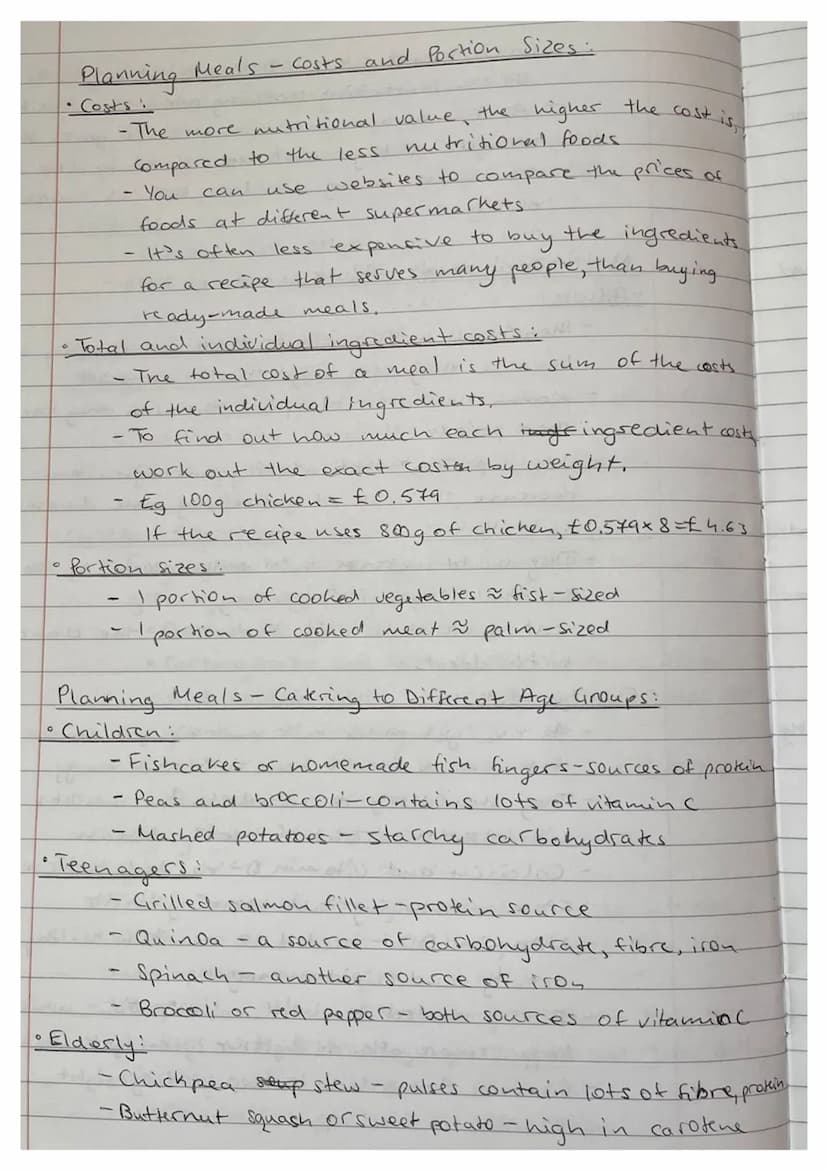 Planning Meals - Costs and Portion Sizes:
• Costs:
- The more nutritional value, the higher the cost is,
compared to the less nutritional foods
- You can use websites to compare the prices of
foods at different supermarkets
- It's often less expensive to buy the ingredients
for a recipe that serves many people, than buying
ready-made meals.
• Total and individual ingredient costs:
- The total cost of a meal is the sum of the costs
of the individual ingredients.
- To find out how much each ingredient costs
work out the exact costs by weight.
- Eg 100g chicken = £0.579
If the recipe uses 800g of chicken, £0.579 x 8 = £4.63
• Portion sizes:
- 1 portion of cooked vegetables ≈ fist-sized
- 1 portion of cooked meat ≈ palm-sized
Planning Meals - Catering to Different Age Groups:
• Children:
- Fishcakes or homemade fish fingers - sources of protein
- Peas and broccoli - contains lots of vitamin C
- Mashed potatoes - starchy carbohydrates
• Teenagers:
- Grilled salmon fillet - protein source
- Quinoa - a source of carbohydrate, fibre, iron
- Spinach - another source of iron
- Broccoli or red pepper - both sources of vitamin C
• Elderly:
- Chickpea soup stew - pulses contain lots of fibre, protein
- Butternut squash or sweet potato - high in carotene